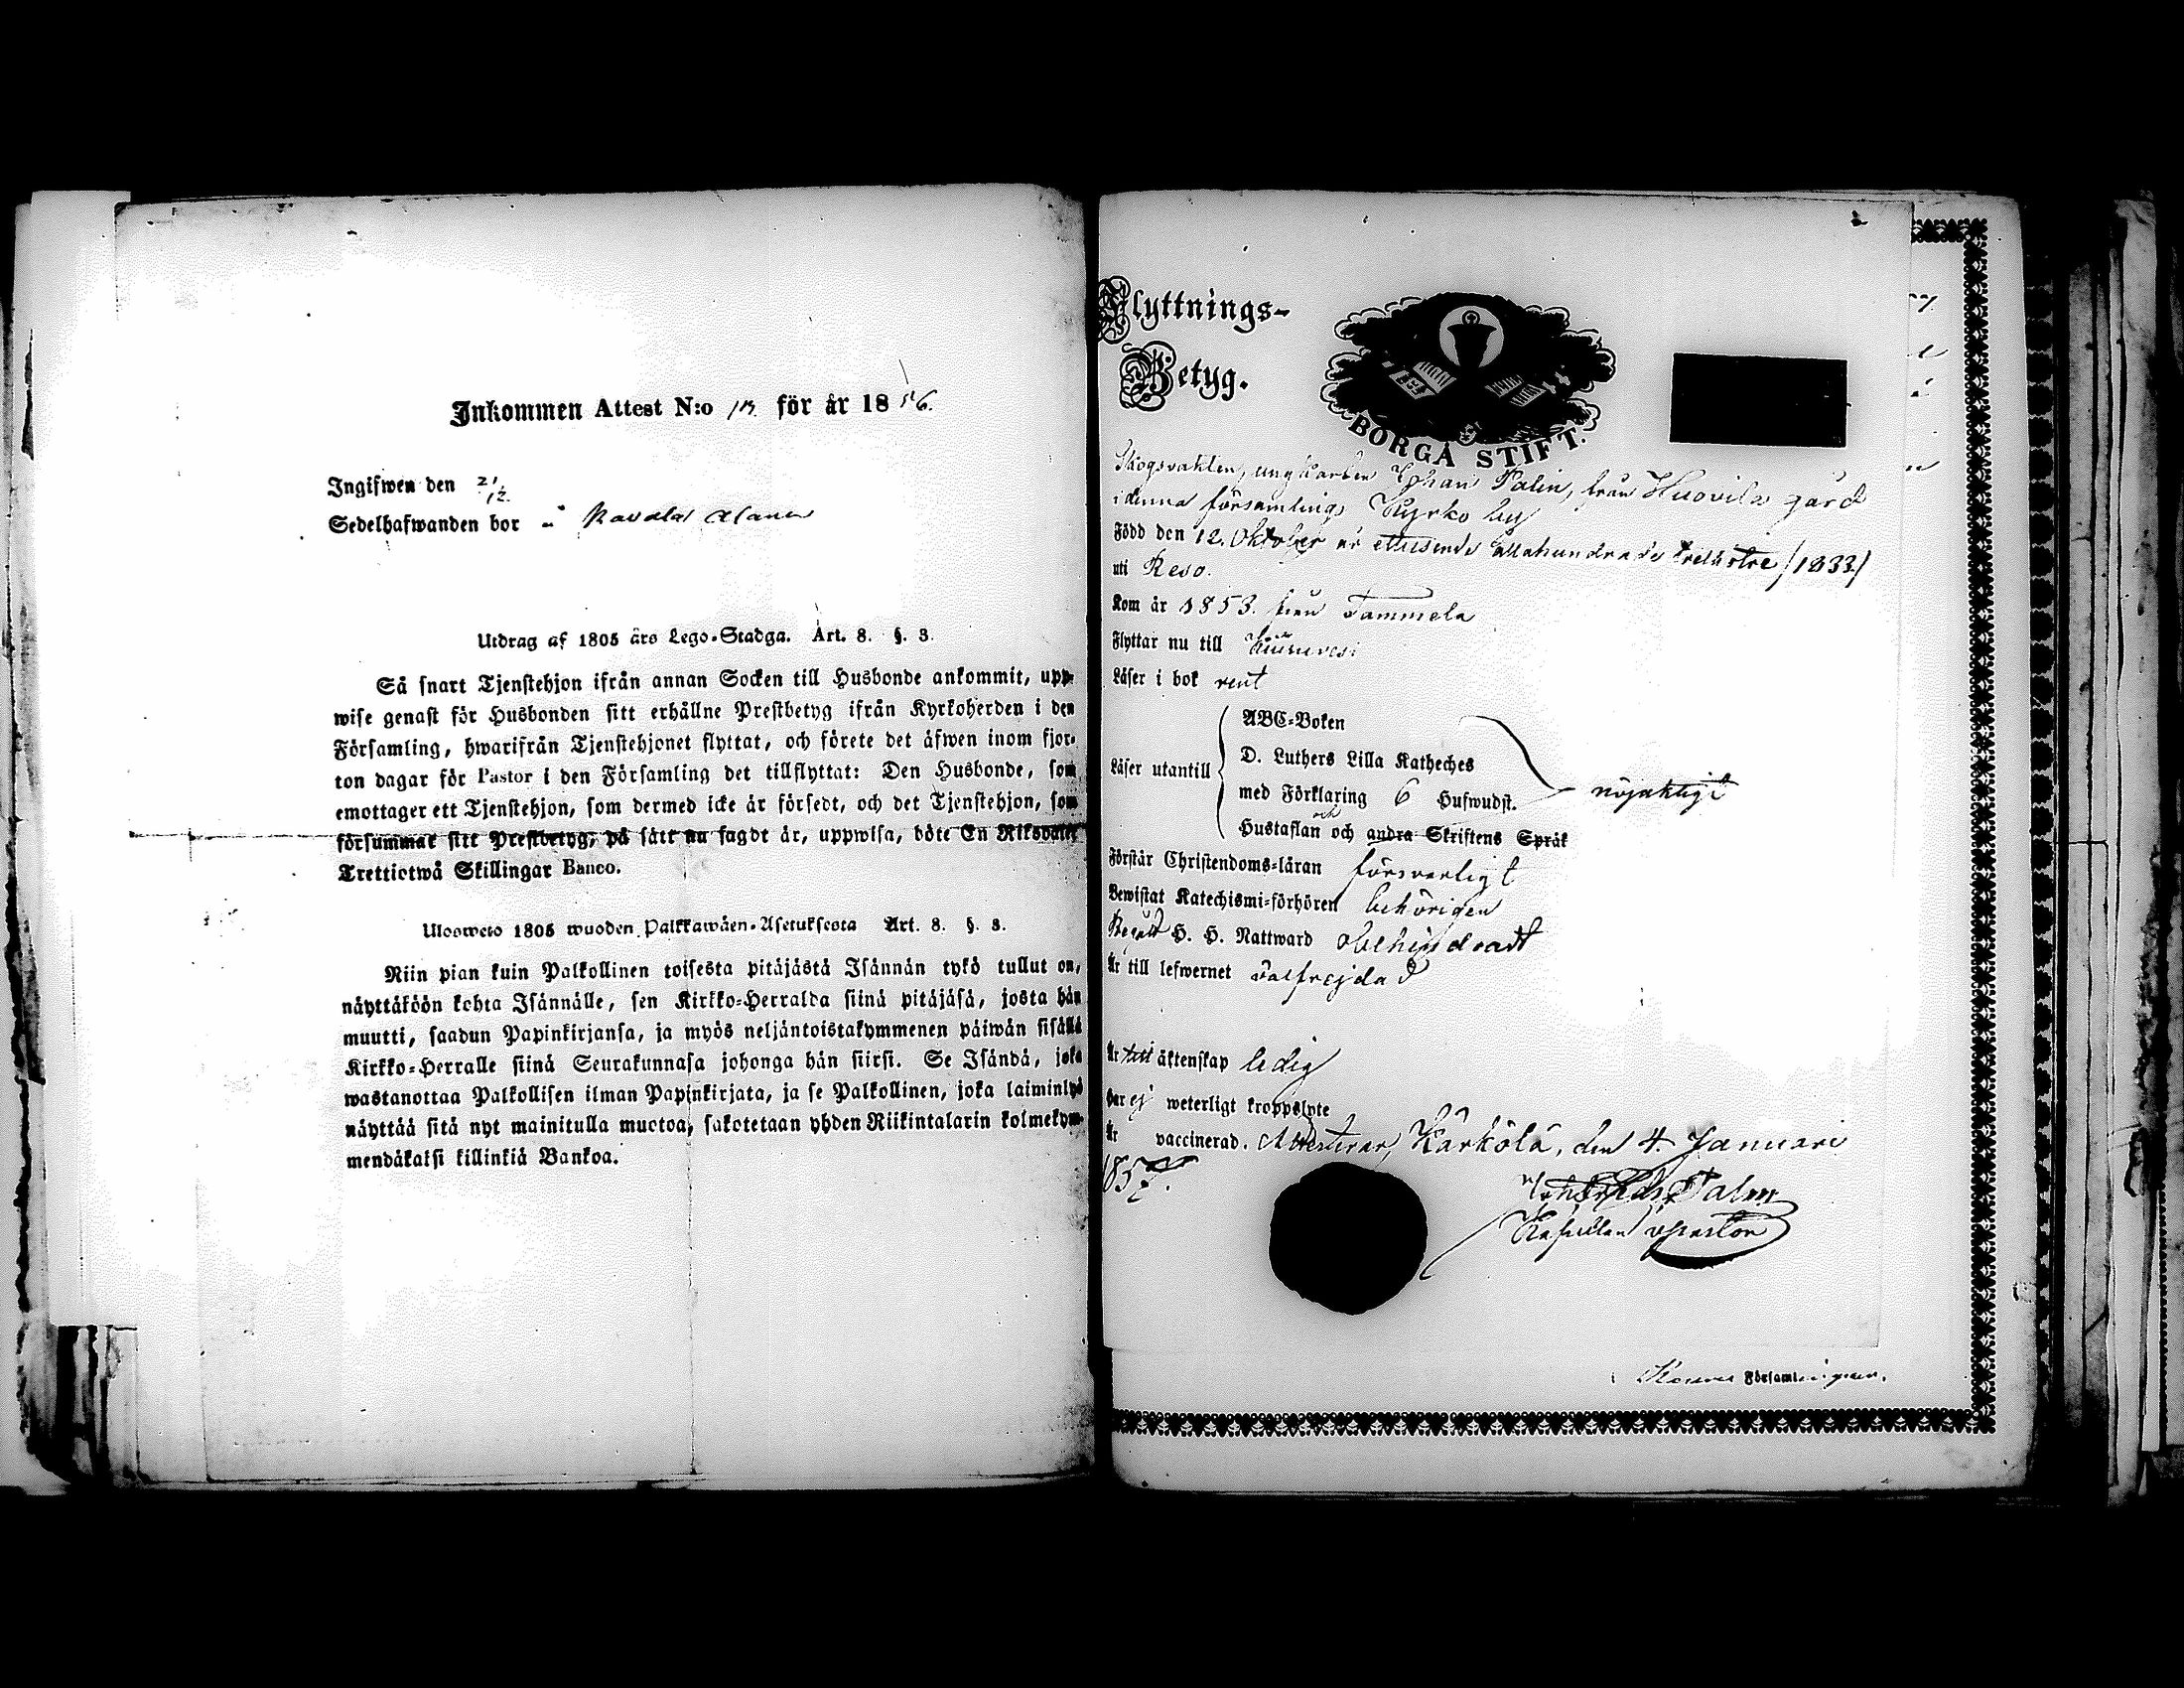 Inkommen Attest N:o 18. för år 1856.
Ingifwen den 21/12.
Sedelhafwanden bor å
Utdrag af 1805 års Lego-Stadga. Art. 8. §. 3.
Så snart Tjenstehjon ifrån annan Socken till Husbonde ankommit, upp-
wise genast för Husbonden sitt erhållne Prestbetyg ifrån Kyrkoherden i den
Församling, hwarifrån Tjenstehjonet flyttat, och förete det äfwen inom fjor-
ton dagar för Pastor i den Församling det tillflyttat: Den Husbonde, som
emottager ett Tjenstehjon, som dermed icke är försedt, och det Tjenstehjon, som
försummar sitt Prestbetyg, på sätt nu sagdt är, uppwisa, böte En Riksdaler
Trettiotwå Skillingar Banco.
Ulosweto 1805 wuoden Palkkawäen-Asetuksesta Art. 8. §. 3.
Niin pian kuin Palkollinen toisesta pitäjästä Isännän tykö tullut on,
näyttäköön kohta Isännälle, sen Kirkko-Herralda siinä pitäjäsä, josta hän
muutti, saadun Papinkirjansa, ja myös neljäntoistakymmenen päiwän sisällä
Kirkko-Herralle siinä Seurakunnasa johonga hän siirsi. Se Isändä, joka
wastanottaa Palkollisen ilman Papinkirjata, ja se Palkollinen, joka laiminlyö
näyttää sitä nyt mainitulla muotoa, sakotetaan yhden Riikintalarin kolmekym-
mendäkaksi killinkiä Bankoa.
Flyttnings-
Betyg.
BORGÅ STIFT.
Skogsvakten, ungkarlen Johan Palin, från Huovila gård
i denna församlings Kyrko by
Född den 12. Oktober år ettusende åttahundrade trettiotre /1833/
uti Reso.
Kom år 1853. från Tammela
Flyttar nu till
Läser i bok rent
Läser utantill
ABC-Boken
D. Luthers Lilla Katheches
med Förklaring 6 Hufwudst.
Hustaflan och och andra Skriftens Språk
nöjaktigt
Förstår Christendoms-läran försvarligt
Bewistat Katechismi-förhören behörigen
Begått H. H. Nattward obehindradt
Är till lefwernet välfrejdad
Är till äktenskap ledig
Har ej weterligt kroppslyte
Är vaccinerad. Attesterar, Kärkölä, den 4. Januari
1857.
Palm
Kapellan v Pastor
Församlingen.